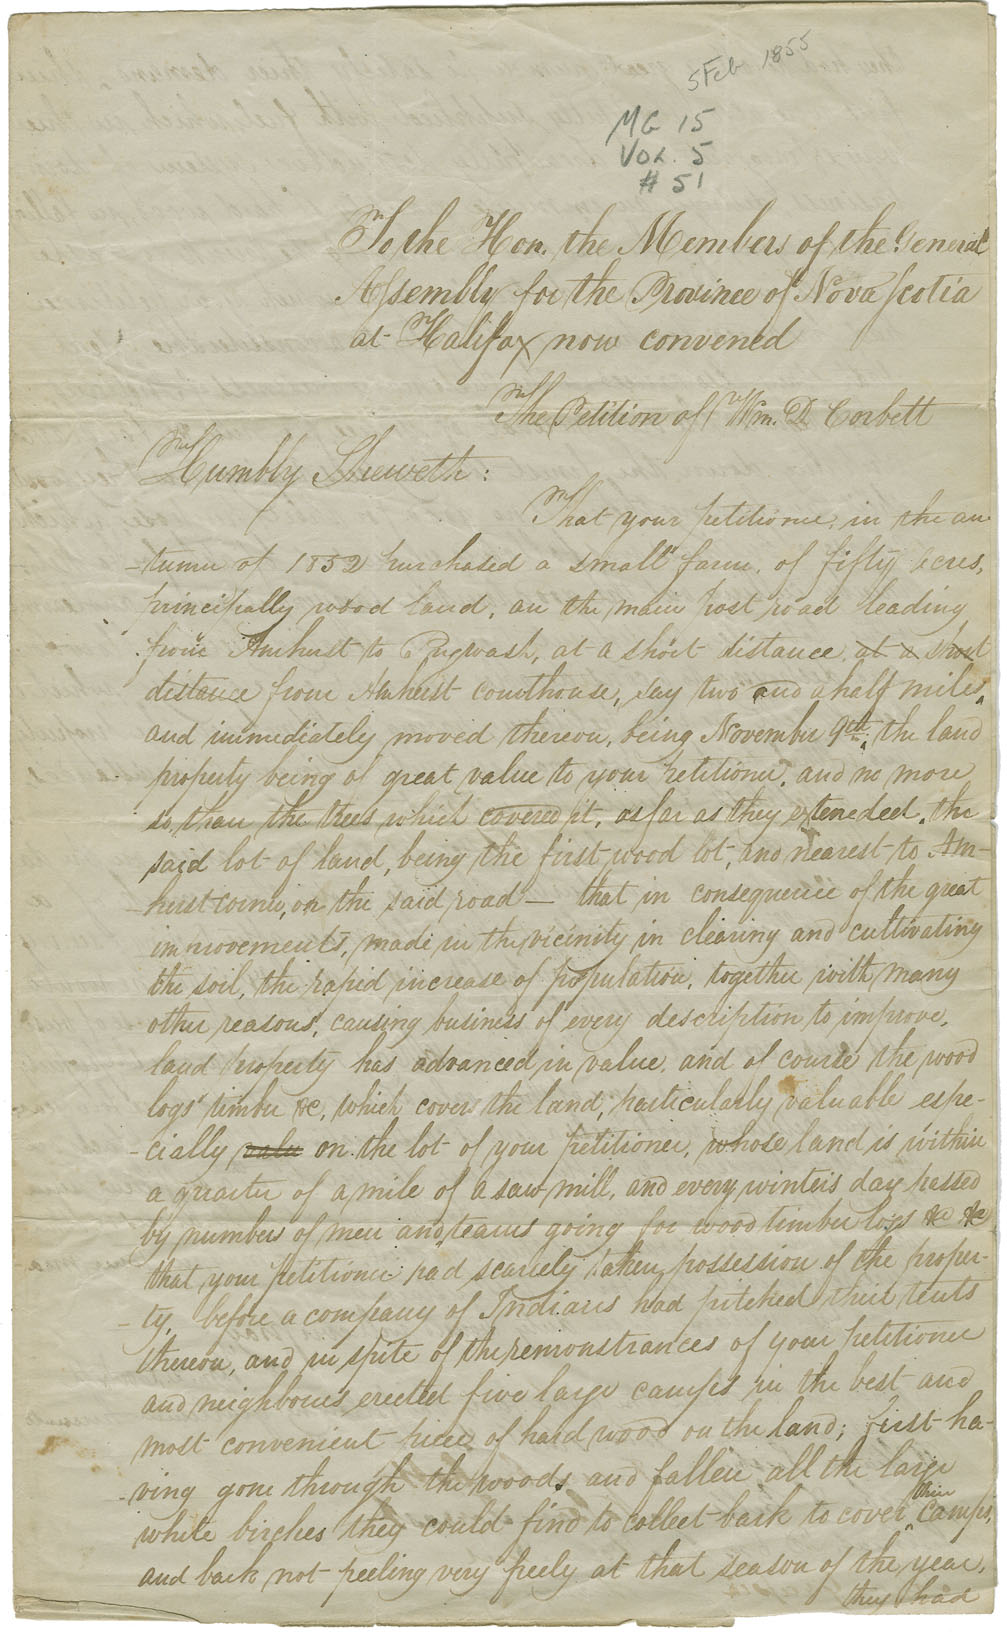 5 Feb 1855
MG 15
Vol. 5
# 51
To the Hon. the Members of the General
Assembly for the Province of Nova Scotia
at Halifax now convened
The Petition of Wm. D Corbett
Humbly Sheweth:
That your petitioner, in the au-
-tumn of 1852 purchased a small farm, of fifty acres,
principally wood land, on the main post road leading
from Amherst to Pugwash, at a short distance, at a short
distance from Amherst courthouse, say two and a half miles,
and immediately moved thereon, being November 9th, the land
property being of great value to your petitioner, and no more
so, than the trees which covered it, as far as they extended, the
said lot of land, being the first wood lot, and nearest to Am-
-herst corner, on the said road — that in consequence of the great
improvements, made in the vicinity in clearing and cultivating
the soil, the rapid increase of population, together with many
other reasons, causing business of every description to improve,
land property has advanced in value, and of course the wood
logs timber &c, which covers the land, particularly valuable espe-
-cially valu on the lot of your petitioner, whose land is within
a quarter of a mile of a saw mill, and every winters day passed
by numbers of men and teams going for wood timber logs &c &c
that your petitioner had scarcely taken possession of the proper-
-ty, before a company of Indians had pitched their tents
thereon, and in spite of the remonstrances of your petitioner
and neighbours erected five large camps in the best and
most convenient piece of hard wood on the land; first ha-
-ving gone through the woods and fallen all the large
white birches they could find to collect bark to cover their camps,
and bark not peeling very freely at that season of the year,
they had